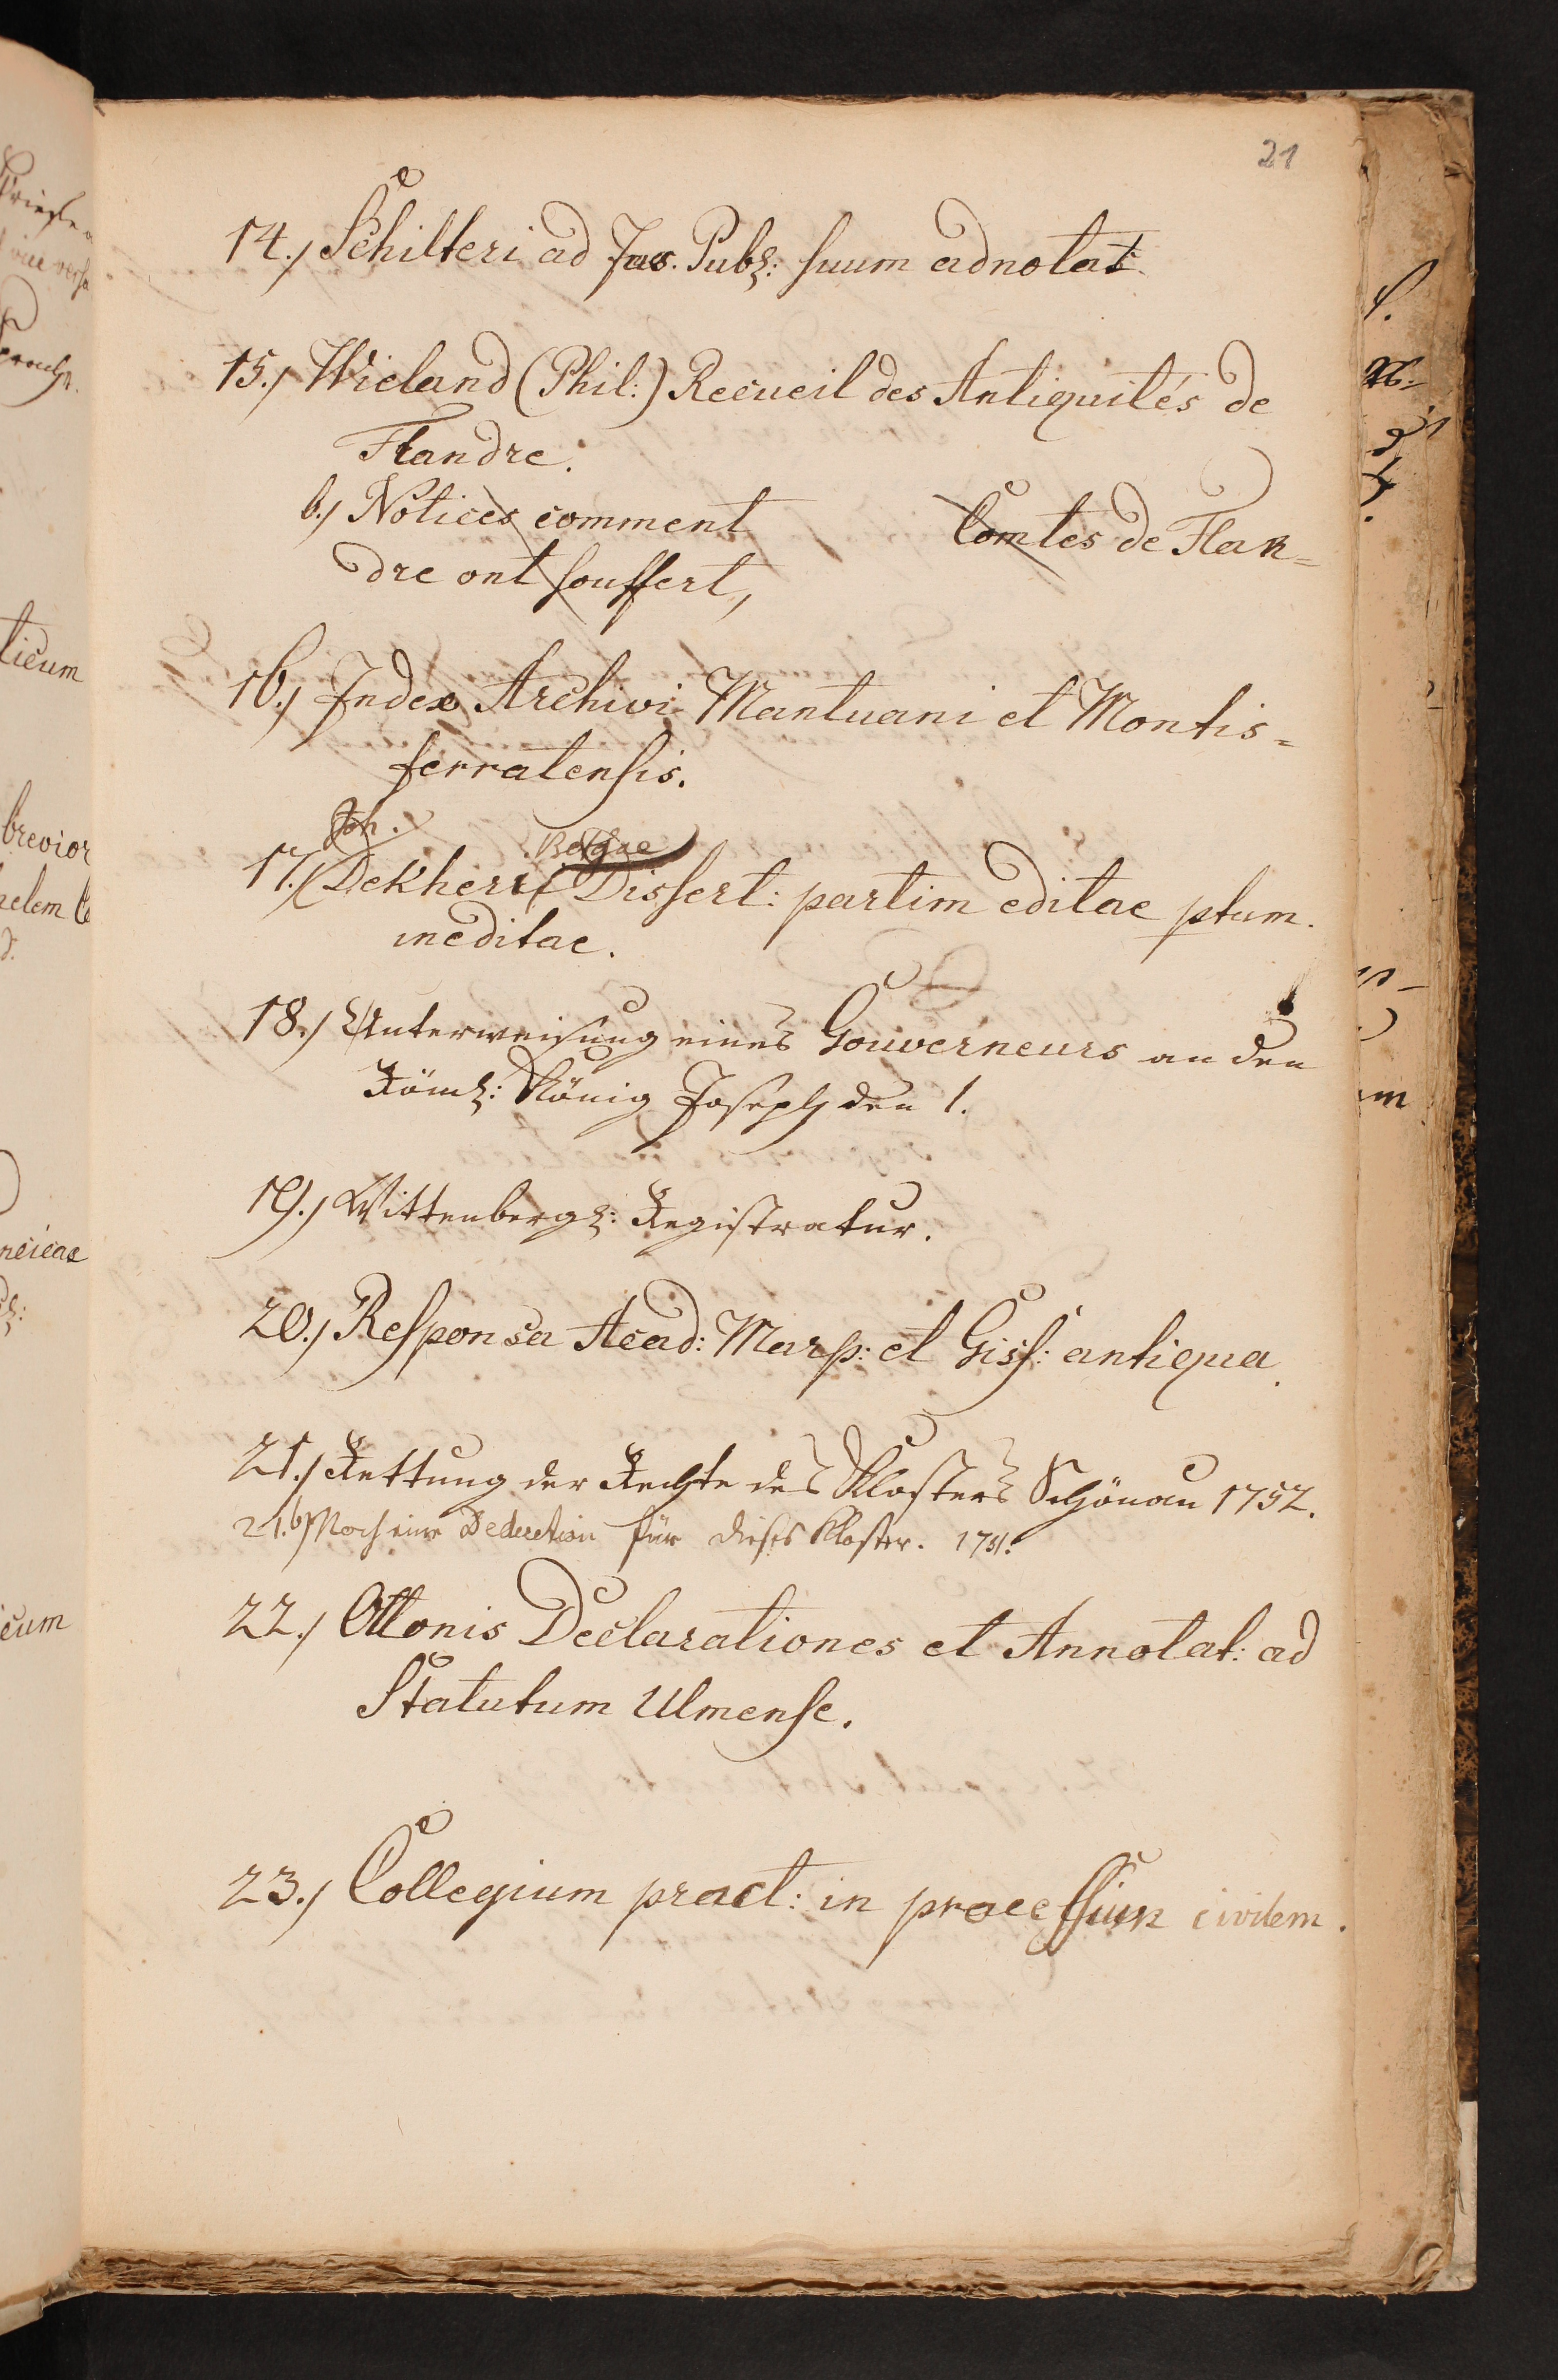 21
14.) Schilteri ad Jus. Publ: suum adnotat.
15.) Wieland (Phil:) Recueil des Antiquités de
Flandre.
b.) Notices comment Comtes de Flan=
dre ont souffert,
16.) Index Archivi Mantuani et Montis=
ferratensis.
Joh.
17.) Dekheri Dissert: partim editae ptum.
ineditae.
18.) Unterweisung eines Gouverneurs an den
Röml: König Joseph den 1.
19.) Wittenbergl: Registratur.
20.) Responsa Acad: Marp: et Giss: antiqua.
21.) Rettung der Rechte des Klosters Schönau 1752.
21.b) Noch eine Deduction für dieses Kloster. 1751.
22.) Ottonis Declarationes et Annotat: ad
Statutum Ulmense.
23.) Collegium pract: in processum civilem.